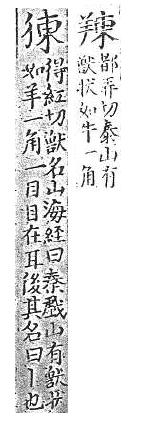 䍶
都弄切泰山有
獸狀如牛一角
得紅切獸名山海経曰泰戱山有獸狀
如羊一角一目目在耳後其名曰丨也